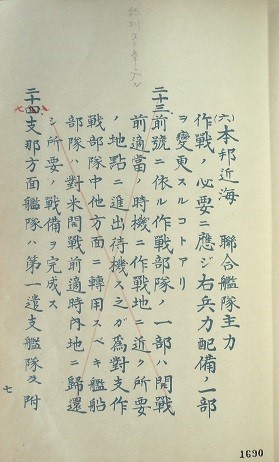 (六)本邦近海　聯合艦隊主力
作戰ノ必要ニ應ジ右兵力配備ノ一部
ヲ變更スルコトアリ
二十三前號ニ依ル作戰部隊ノ一部ハ開戰
前適當ノ時機ニ作戰地ニ近ク所要
ノ地點ニ進出待機ス之ガ爲對支作
戰部隊中他方面ニ轉用スベキ艦船
部隊ハ對米開戰前適時內地ニ歸還
シ所要ノ戰備ヲ完成ス
二十四支那方面艦隊ハ第一遣支艦隊及附
七
1690